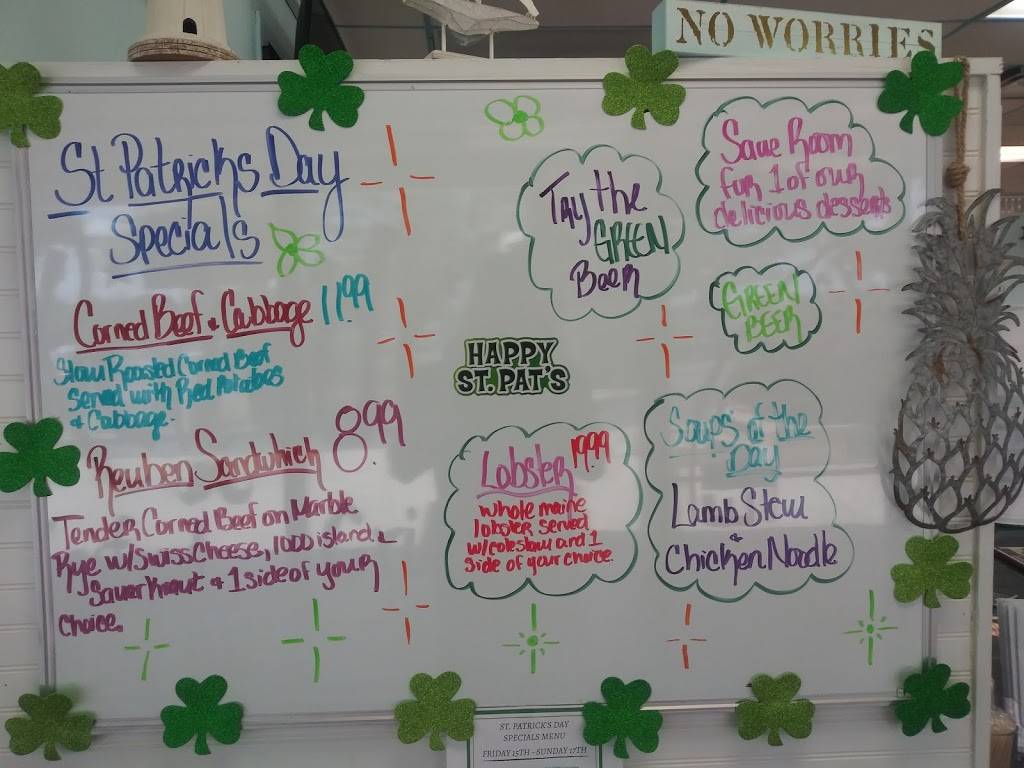 NO WORRIES
St Patricks Day
Specials
Corned Beef & Cabbage 11.99
Slow Roasted Corned Beef
Served with Red Potatoes
& Cabbage.
Reuben Sandwhich 8.99
Tender Corned Beef on Marble
Rye w/Swiss Cheese, 1000 island &
Sauerkraut & 1 side of your
choice.
Try the
GREEN
Beer
Save Room
for 1 of our
delicious desserts
GREEN
BEER
HAPPY
ST. PAT'S
Lobster 19.99
whole maine
lobster served
w/coleslaw and 1
side of your choice.
Soups of the
Day
Lamb Stew
&
Chicken Noodle
ST. PATRICK'S DAY
SPECIALS MENU
FRIDAY 15TH - SUNDAY 17TH